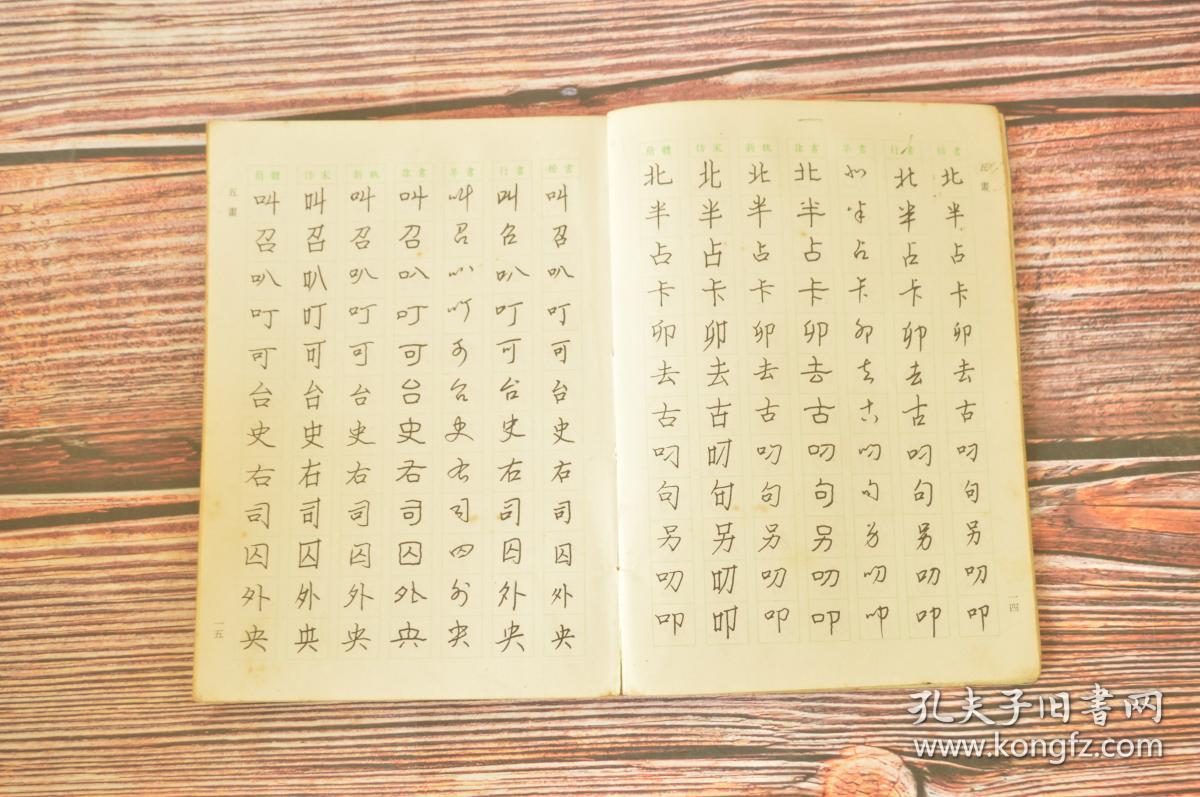 五畫
一四
楷書
北半占卡卯去古叼句另叨叩
行書
北半占卡卯去古叼句另叨叩
草書
北半占卡卯去古叼句另叨叩
隸書
北半占卡卯去古叼句另叨叩
新魏
北半占卡卯去古叼句另叨叩
仿宋
北半占卡卯去古叼句另叨叩
簡體
北半占卡卯去古叼句另叨叩
楷書
叫召叭叮可台史右司囚外央
行書
叫召叭叮可台史右司囚外央
草書
叫召叭叮可台史右司囚外央
隸書
叫召叭叮可台史右司囚外央
新魏
叫召叭叮可台史右司囚外央
仿宋
叫召叭叮可台史右司囚外央
簡體
叫召叭叮可台史右司囚外央
五畫
一五
孔夫子旧书网
www.kongfz.com